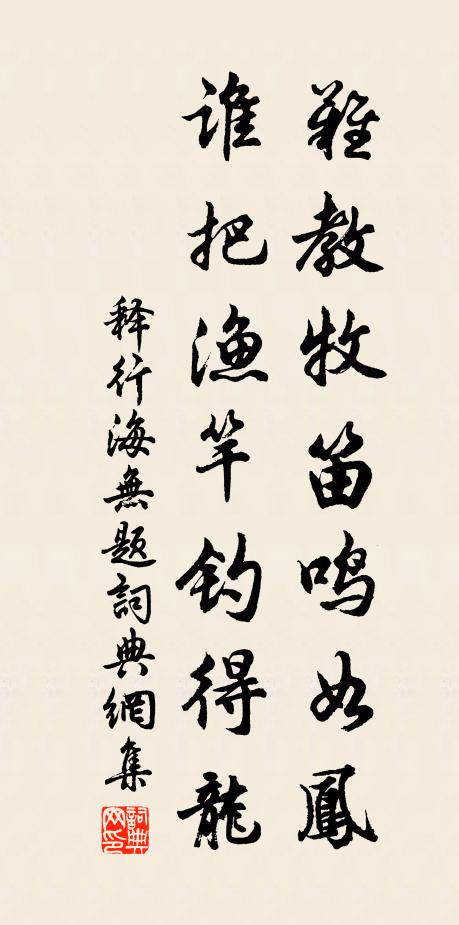 難教牧笛鳴如鳳
誰把漁竿釣得龍
释行海無題詞典網集
詞典网印